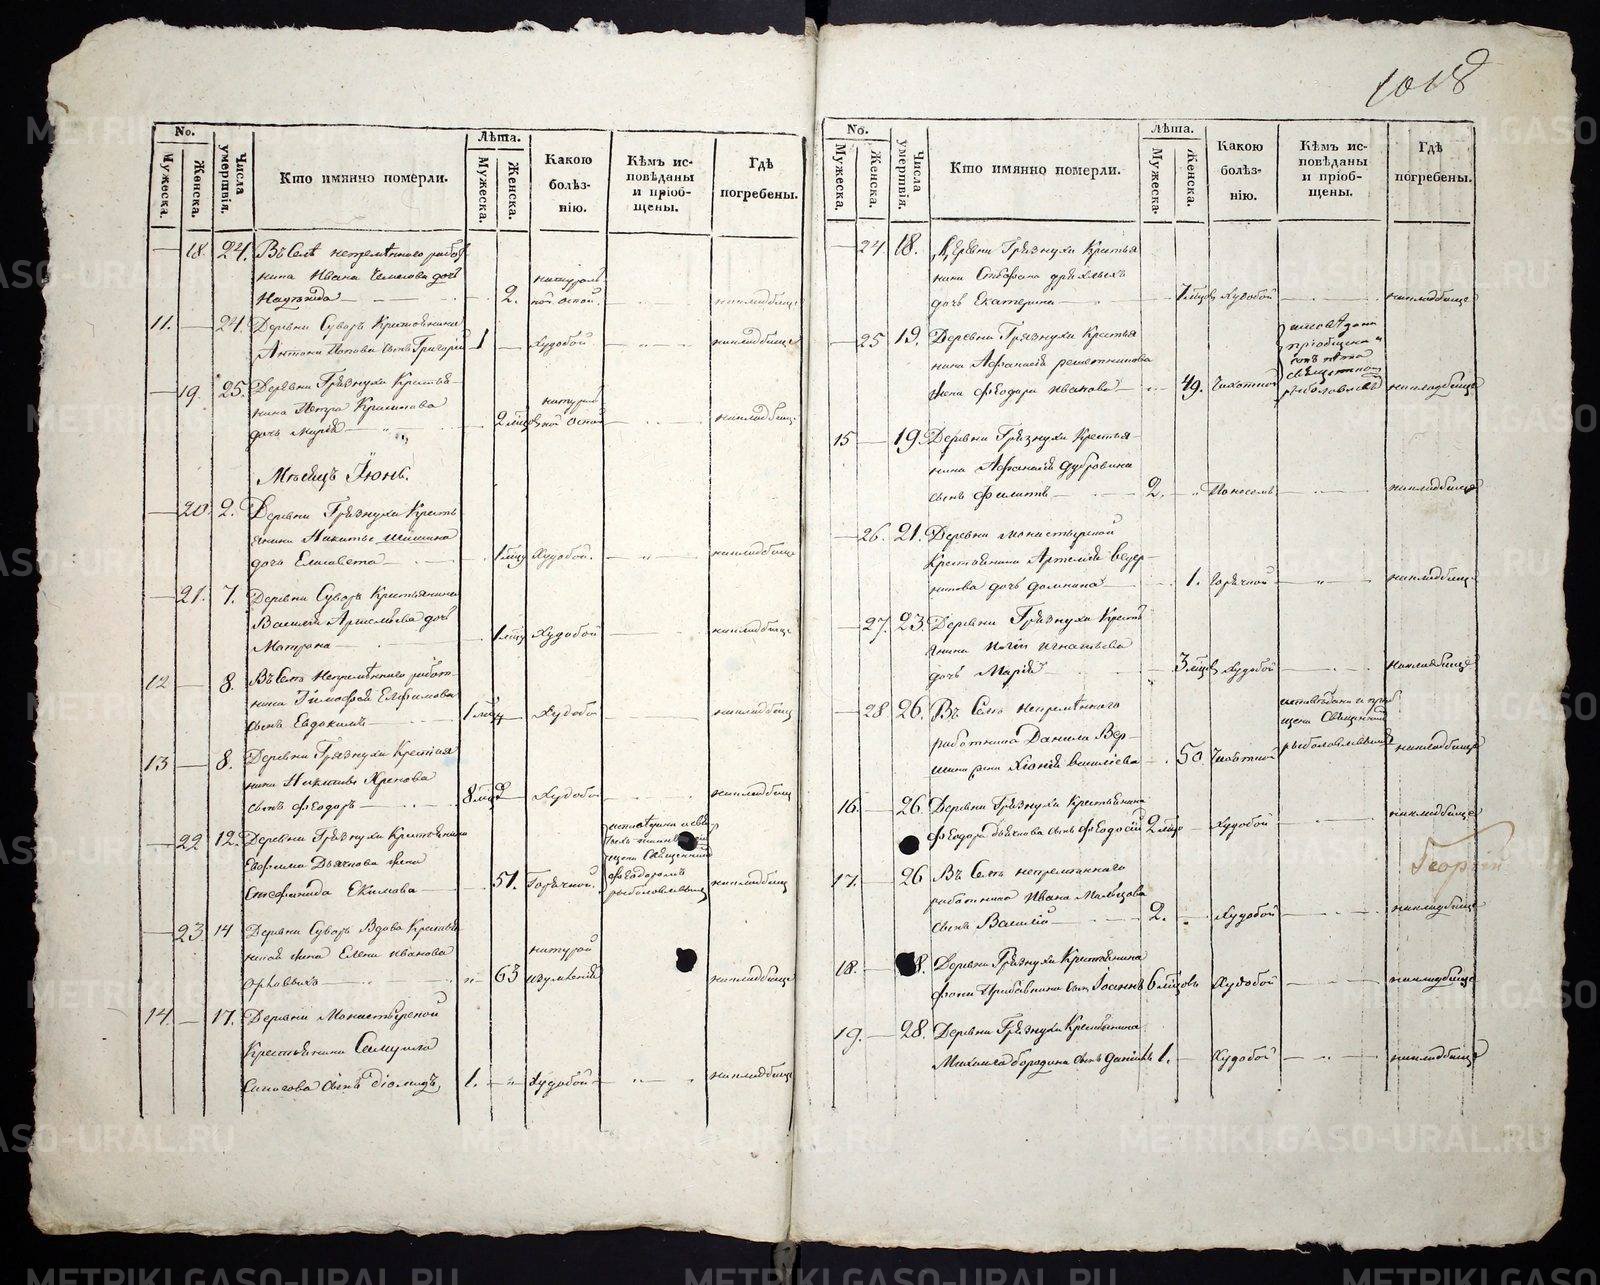 1018
No.
Мужеска.
Женска.
Числа умертвія.
Кто имянно померли.
Лѣта.
Мужеска.
Женска.
Какою болѣз-
нію.
Кѣмъ ис-
повѣданы
и пріоб-
щены.
Гдѣ
погребены.
18. 24. Въ Селѣ непремѣннаго работ
ника Ивана дочь
Надежда 2. натураль
ной оспой. на кладбище
11. 24. Деревни Суворъ Крестьянина
Антона Попова сынъ Григорій 1 Худобой на кладбище
19. 25. Деревни Грязнухи Крестья-
нина Петра
дочь Марія 2 мѣсяц натураль
ной оспой на кладбище
Мѣсяцъ Іюнь.
20. 2. Деревни Грязнухи Кресть
янина Никиты Шишина
дочь Елисавета 1 мѣсяц Худобой. на кладбище
21. 7. Деревни Суворъ Крестьянина
Василья Артемьева дочь
Матрона 1 мѣсяц Худобой на кладбище
12 8. Въ Селѣ Непремѣннаго работ
ника Тимофея Елфимова
сынъ Евдокимъ 1 мѣсяц Худобо на кладбищ
13 8. Деревни Грязнухи Крестья
нина Никиты Хренова
сынъ Феодоръ 8 мѣсяц Худобо на кладбищ
22 12. Деревни Грязнухи Крестьянина
Ефима Дьячкова жена
Стефанида Екимова 51. Горячкой.
щена Священник
Феодоромъ
рыболовлевым на кладбищ
23 14 Деревни Суворъ Вдова Крестья
нской жена Елена Иванова
63 натурой
на кладбище
14. 17. Деревни Монастырской
Крестьянина Самуила
сынъ Діомидъ, 1. Худобой на кладбище
No.
Мужеска.
Женска.
Числа умертвія.
Кто имянно померли.
Лѣта.
Мужеска.
Женска.
Какою
болѣз-
нію.
Кѣмъ ис-
повѣданы
и пріоб-
щены.
Гдѣ
погребены.
24. 18. Деревни Грязнухи Крестья
нина Стефана дряхлыхъ
дочь Екатерина 7 мѣсяцов Худобой на кладбище
25 19. Деревни Грязнухи Крестья
нина Афанасія решетникова
жена Феодора Иванова 49. Чахоткой
исповѣдана
пріобщена и
священником
рыболовлевым на кладбище
15 19. Деревни Грязнухи Крестья-
нина Афанасія Дубровина
сынъ Филатъ 2. Поносомъ на кладбище
26. 21. Деревни Монастырской
Крестьянина Артемія Ведер-
никова дочь Домнина 1. Горячкой на кладбище
27. 23. Деревни Грязнухи Кресть
янина Игнатьева
дочь Марія 3 мѣсяцов Худобой на кладбище
28 26. Въ Селѣ непремѣннаго
работника Данила Вер-
шинина Ксенія Васильева 50 Чахоткой
исповѣдана и пріоб
щена Священник
рыболовлевым на кладбище
16. 26. Деревни Грязнухи Крестьянина
Феодора Дьячкова сынъ Феодосій 2 мѣсяц Худобой на кладбище
Георгій
17. 26 Въ Селѣ непремѣннаго
работника Ивана Мальцова
сынъ Василій 2. Худобой на кладбище
18. 28. Деревни Грязнухи Крестьянина
сынъ Іоаннъ 6 мѣсяцовъ Худобой на кладбище
19. 28. Деревни Грязнухи Крестьянина
Михаила бородина сынъ Даніилъ 1. Худобой на кладбище
METRIKI.GASO-URAL.RU